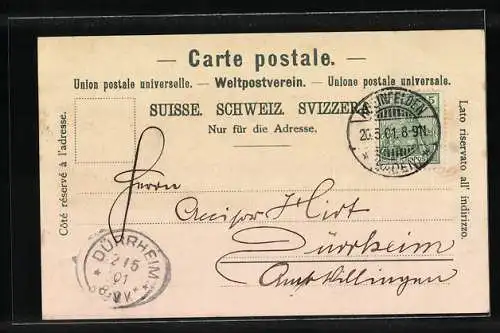 — Carte postale. —
Union postale universelle. — Weltpostverein. — Unione postale universale.
SUISSE. SCHWEIZ. SVIZZERA.
Nur für die Adresse.
Côté réservé à l'adresse.
Lato riservato all' indirizzo.
20.5.01.8-9N.
Herrn
Hirt
Dürrheim
Amt Villingen
DÜRRHEIM
21 5
01